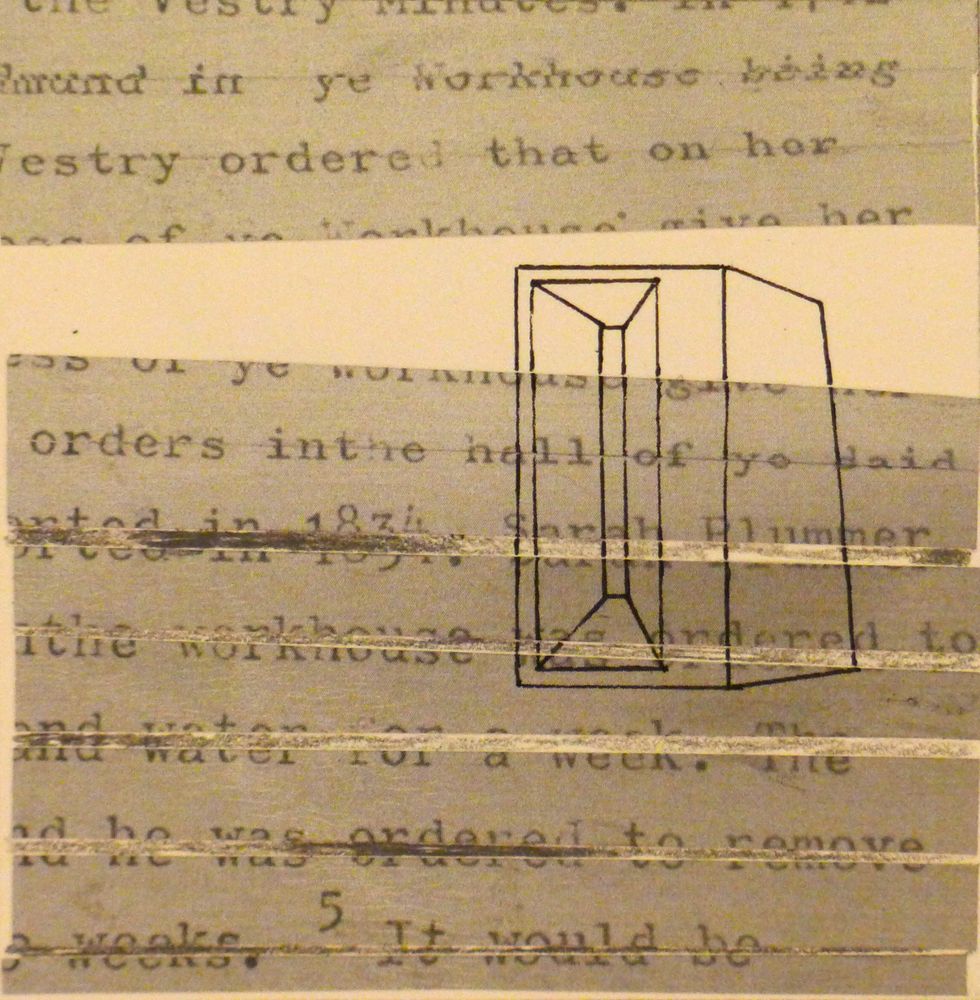 the Vestry Minutes. In
in ye Workhouse being
Vestry ordered that on her
of ye Workhouse give her
ess of ye workhouse give her
orders inthe hall of ye daid
orted in 1834. Sarah Plummer
the workhouse was ordered to
and water for a week. The
nd he was ordered to remove
weeks. 5 It would be